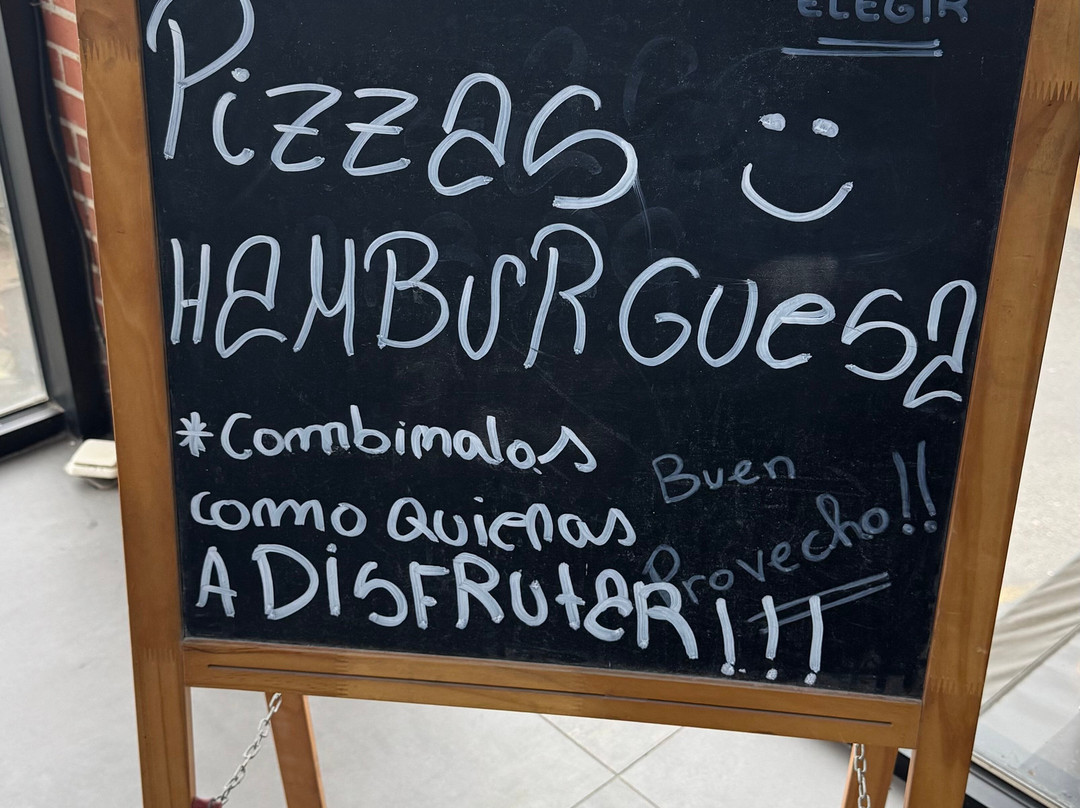 ELEGIR
Pizzas
HAMBURGUesa
*Combinalas
como Quieras
A DiSFRUtaR!!!
Buen
Provecho!!